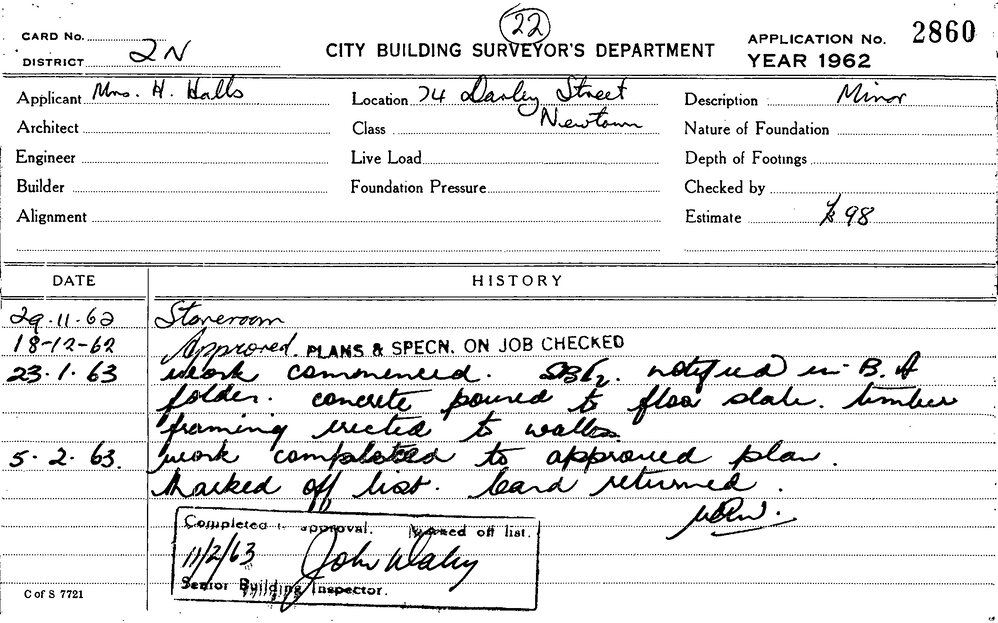 22
CARD No.
DISTRICT 2N
CITY BUILDING SURVEYOR'S DEPARTMENT
APPLICATION No. 2860
YEAR 1962
Applicant Mrs. H. Halls
Location 74 Darley Street
Newtown
Description Minor
Architect
Class
Nature of Foundation
Engineer
Live Load
Depth of Footings
Builder
Foundation Pressure
Checked by
Alignment
Estimate £98
DATE HISTORY
29.11.62 Storeroom
18-12-62 Approved. PLANS & SPECN. ON JOB CHECKED
23.1.63 work commenced. notified in B.A
folder. concrete poured to floor slab. timber
framing erected to walls.
5.2.63. work completed to approved plan.
Marked off list. Card returned.
Completed approval. Marked off list.
11/2/63 John Daley
Senior Building Inspector.
C of S 7721